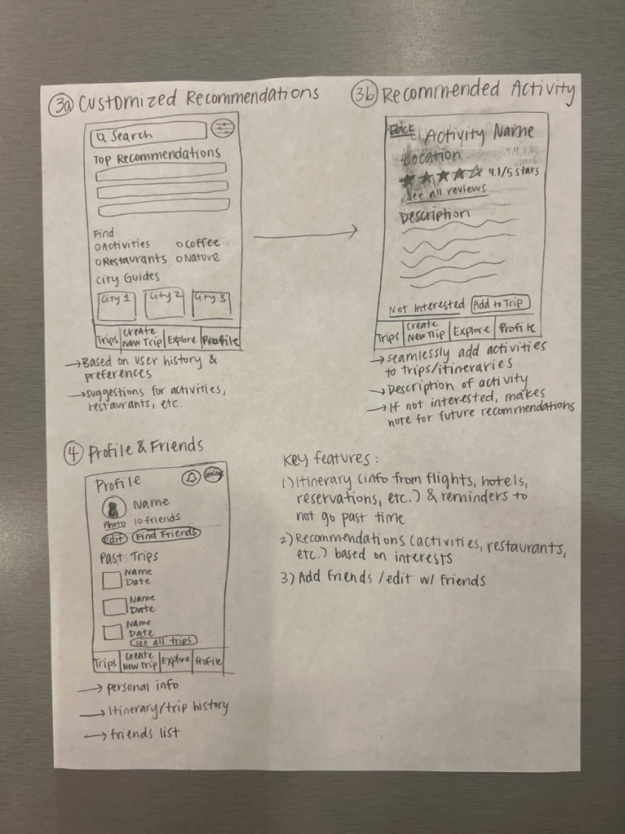 3a Customized Recommendations
Search
Top Recommendations
Find
Activities
Coffee
Restaurants
Nature
City Guides
City 1
City 2
City 3
Trips
Create New Trip
Explore
Profile
→ Based on user history &
preferences
→ suggestions for activities,
restaurants, etc.
3b Recommended Activity
Back
Activity Name
Location
4.1/5 stars
See all reviews
Description
Not Interested
Add to Trip
Trips
Create New Trip
Explore
Profile
→ seamlessly add activities
to trips/itineraries
→ Description of activity
→ If not interested, makes
note for future recommendations
4 Profile & Friends
Profile
Name
Photo
10 friends
Edit
Find Friends
Past Trips
Name
Date
Name
Date
Name
Date
See all trips
Trips
Create New Trip
Explore
Profile
→ personal info
→ Itinerary/trip history
→ friends list
Key features:
1) Itinerary (info from flights, hotels,
reservations, etc.) & reminders to
not go past time
2) Recommendations (activities, restaurants,
etc.) based on interests
3) Add friends /edit w/ friends